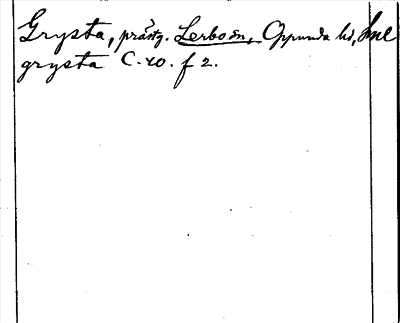 Grysta, prästg. Lerbo sn, Oppunda hd, Sml
grysta C. 20. f 2.